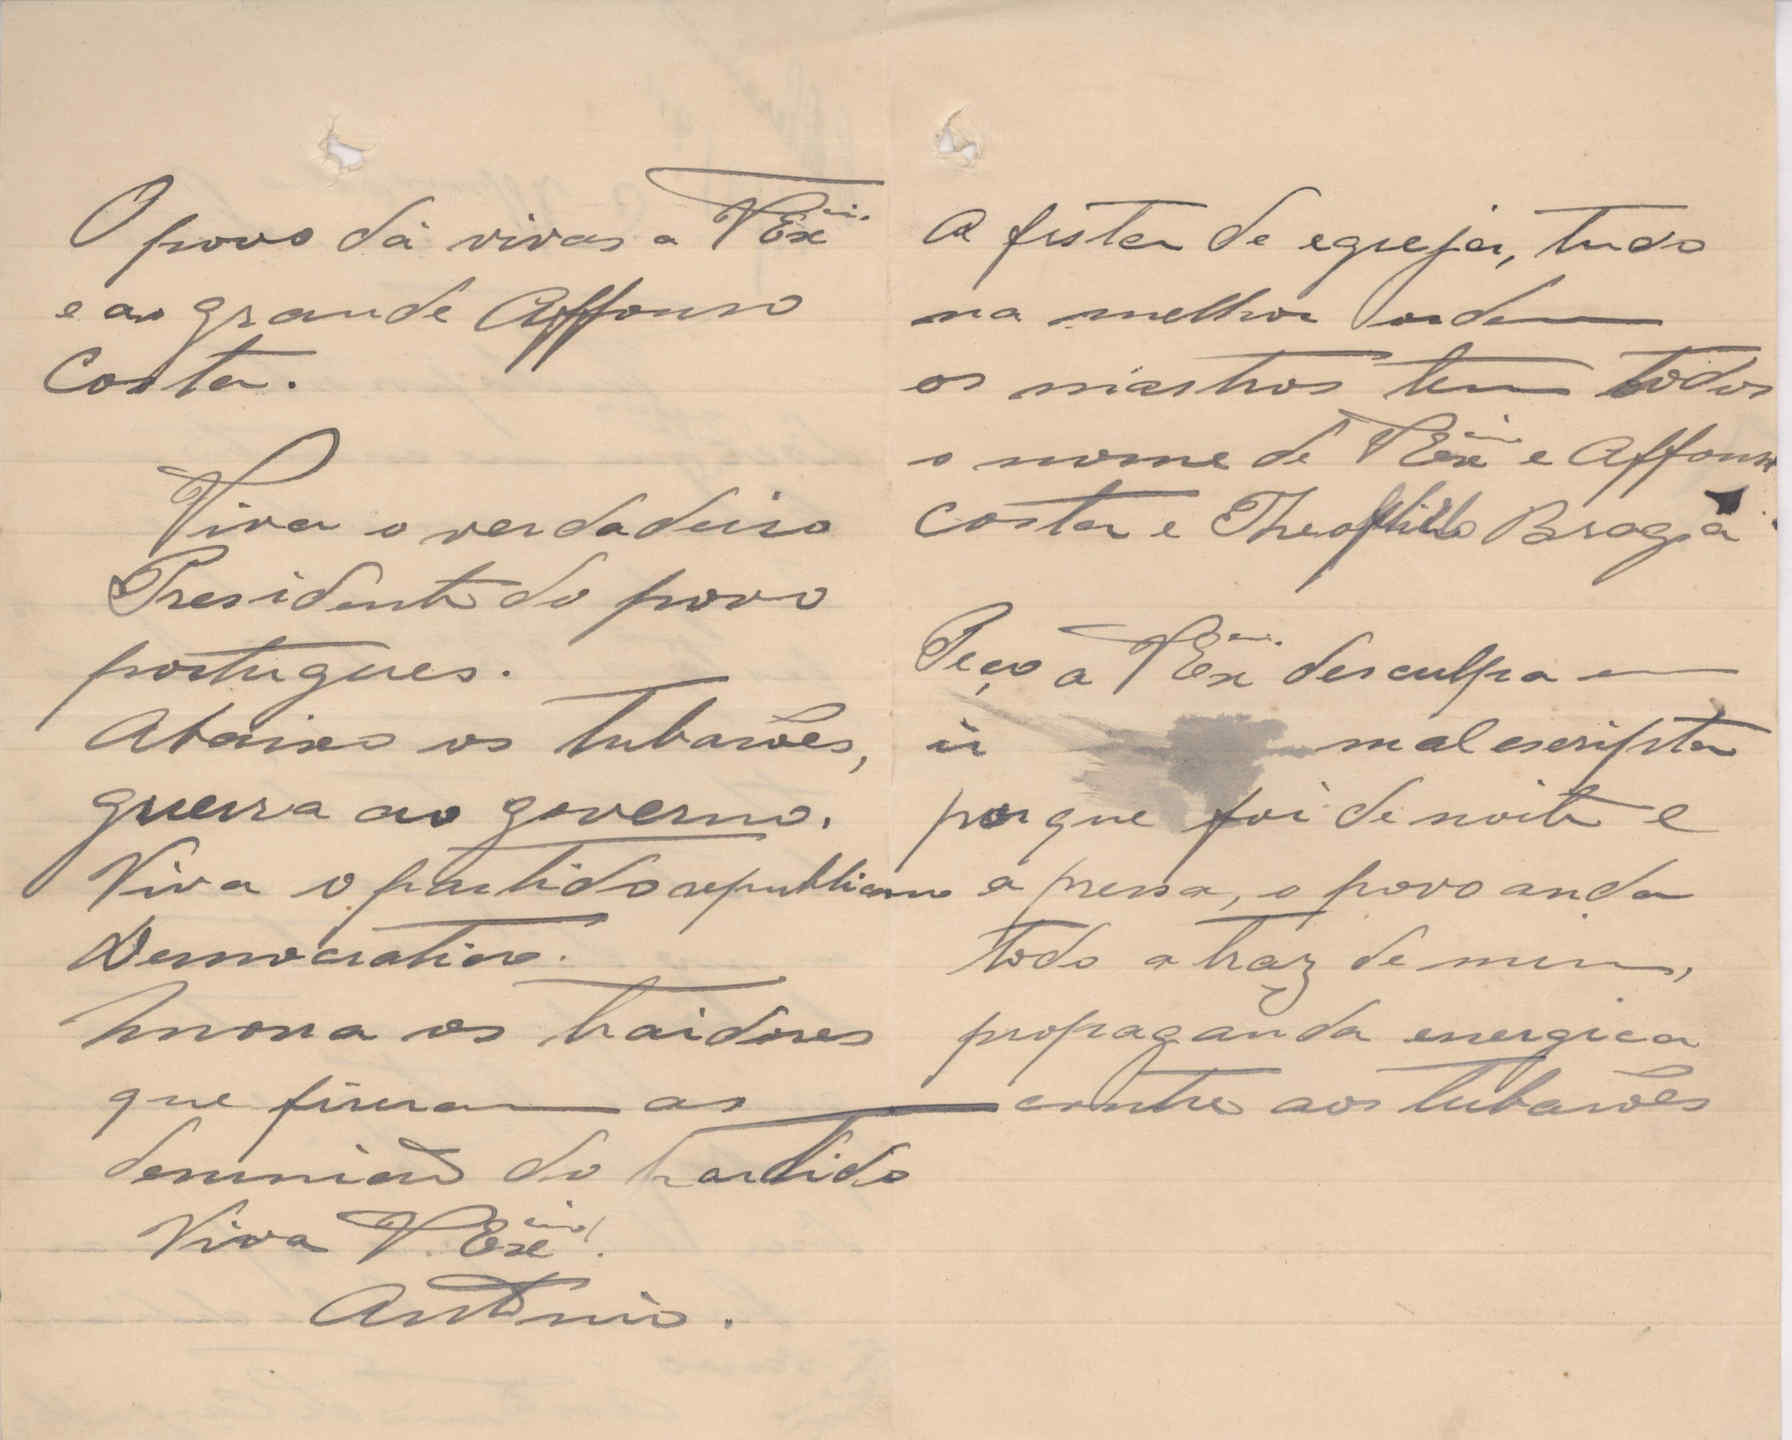 O povo dá vivas a V Exᶜⁱᵃ
e ao grande Affonso
Costa.
Viva o verdadeiro
Presidente do povo
portugues.
Abaixo os tubarões,
guerra ao governo.
Viva o partido republicano
Democratico.
Morra os traidores
que fiseram as
desunião do partido
Viva V. Exᶜⁱᵃ!
Antonio.
A festa de egreja, tudo
na melhor ordem
os mastros tem todos
o nome de V Exᶜⁱᵃ e Affonso
Costa e Theophilo Braga
Peço a V Exᶜⁱᵃ desculpa
ir mal escripta
porque foi de noite e
a pressa, o povo anda
todo a traz de mim,
propaganda energica
contra aos tubarões